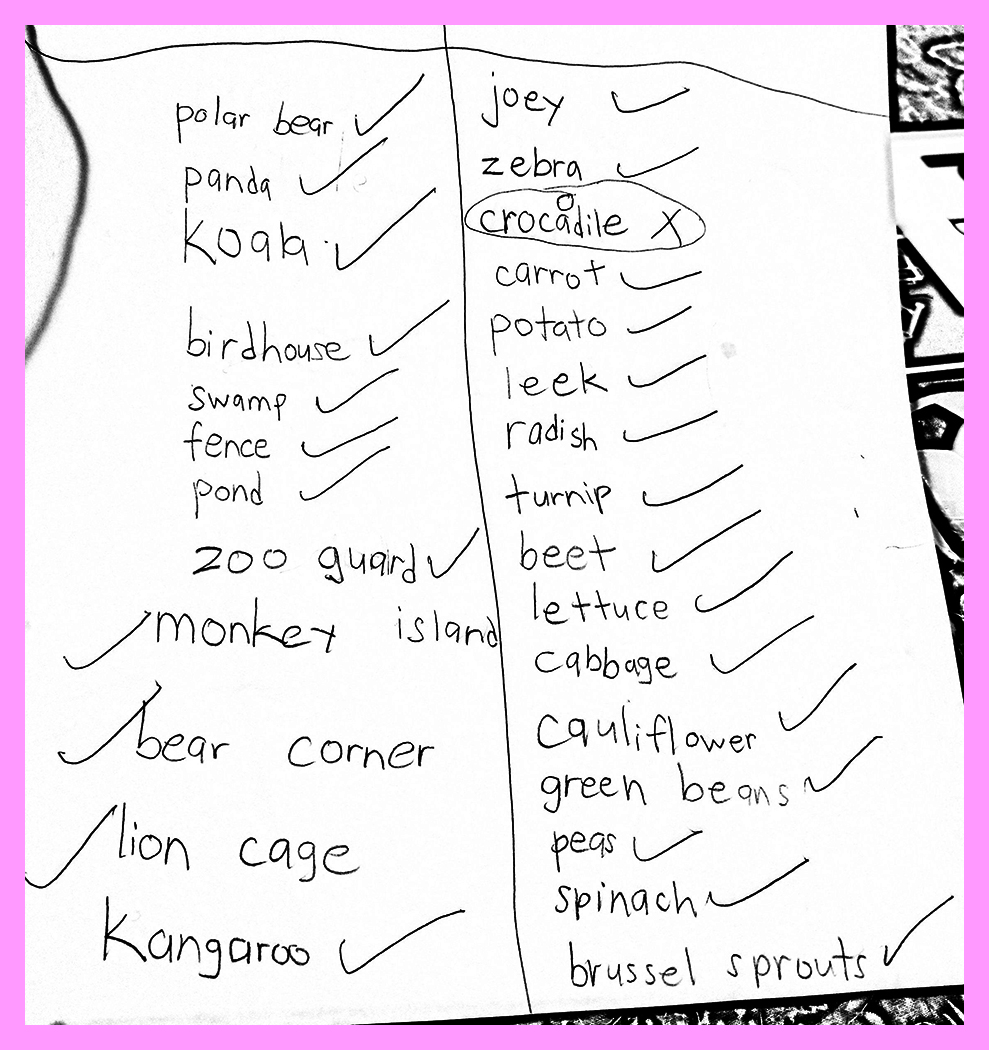 polar bear ✓
panda ✓
Koala ✓
birdhouse ✓
swamp ✓
fence ✓
pond ✓
zoo guard ✓
✓ monkey island
✓ bear corner
✓ lion cage
Kangaroo ✓
joey ✓
zebra ✓
o
crocadile X
carrot ✓
potato ✓
leek ✓
radish ✓
turnip ✓
beet ✓
lettuce ✓
cabbage ✓
cauliflower ✓
green beans ✓
peas ✓
spinach ✓
brussel sprouts ✓